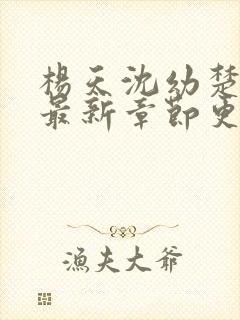 楊天沈幼楚
最新章節更
漁夫大爺